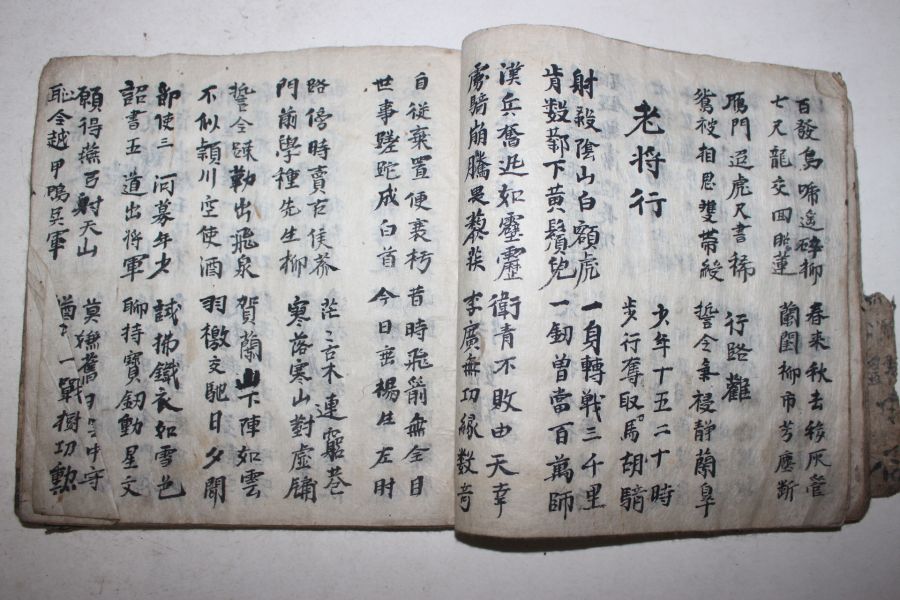 百發烏啼遙碎柳
七尺龍交回照蓮
春來秋去移灰管
蘭閨柳市芳塵斷
雁門迢遞尺書稀
鴛被相思雙帶緩
行路難
誓令氛祲靜蘭皐
老將行
少年十五二十時
步行奪取馬胡騎
射殺陰山白額虎
肯數鄴下黃鬚兒
一身轉戰三千里
一劒曾當百萬師
漢兵奮迅如霹靂
虜騎崩騰畏蒺藜
衛青不敗由天幸
李廣無功緣數奇
自從棄置便衰朽
世事蹉跎成白首
昔時飛箭無全目
今日垂楊生左肘
路傍時賣古侯苽
門前學種先生柳
茫〻古木連窮巷
寥落寒山對虛牖
誓令疎勒出飛泉
不似潁川空使酒
賀蘭山下陣如雲
羽檄交馳日夕聞
節使三河募年少
詔書五道出將軍
試拂鐵衣如雪色
聊持寶劒動星文
願得燕弓射天山
恥令越甲鳴吳軍
莫嫌舊日雲中守
猶〻一戰樹功勲